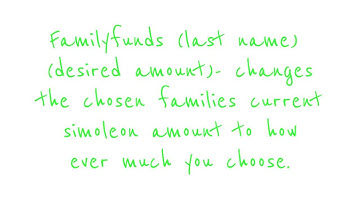 Familyfunds (last name)
(desired amount)- changes
the chosen families current
simoleon amount to how
ever much you choose.